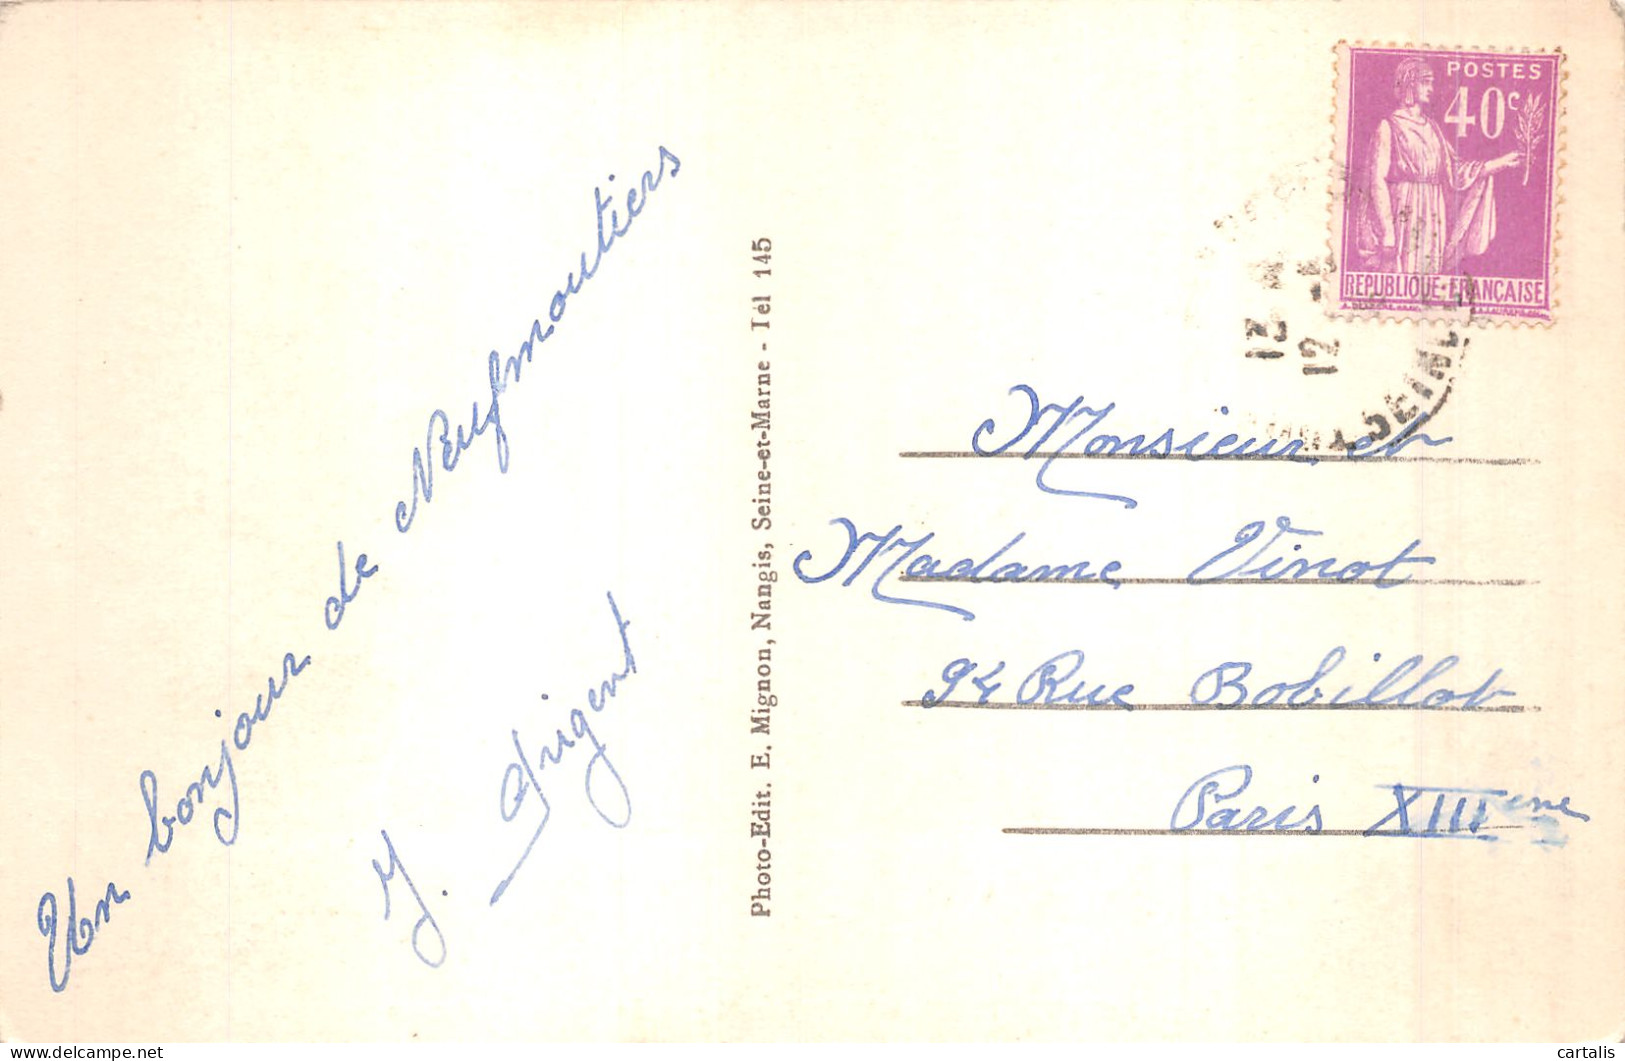 Un bonjour de Neufmoutiers
J. Prigent
Photo-Edit. E. Mignon, Nangis, Seine-et-Marne - Tél 145
POSTES
40c
REPUBLIQUE FRANÇAISE
13
12
SEINE
Monsieur et
Madame Vinot
94 Rue Bobillot
Paris XIIIeme
cartalis
delcampe.net